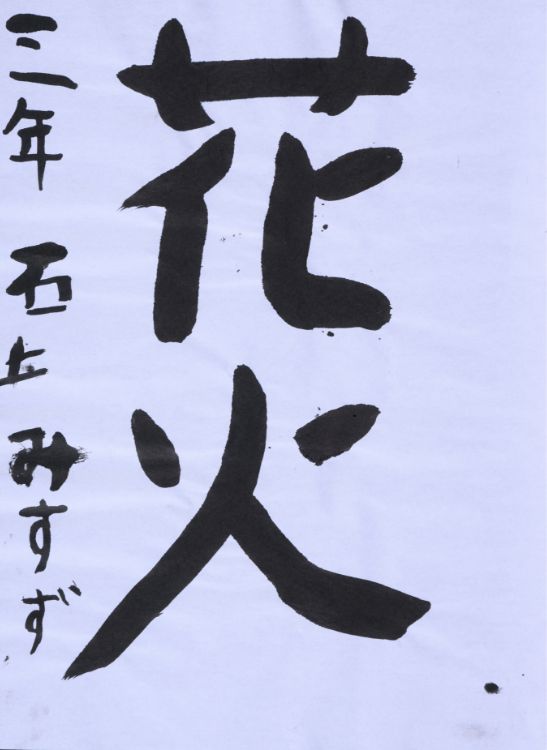 花火
三年 石上 みすず